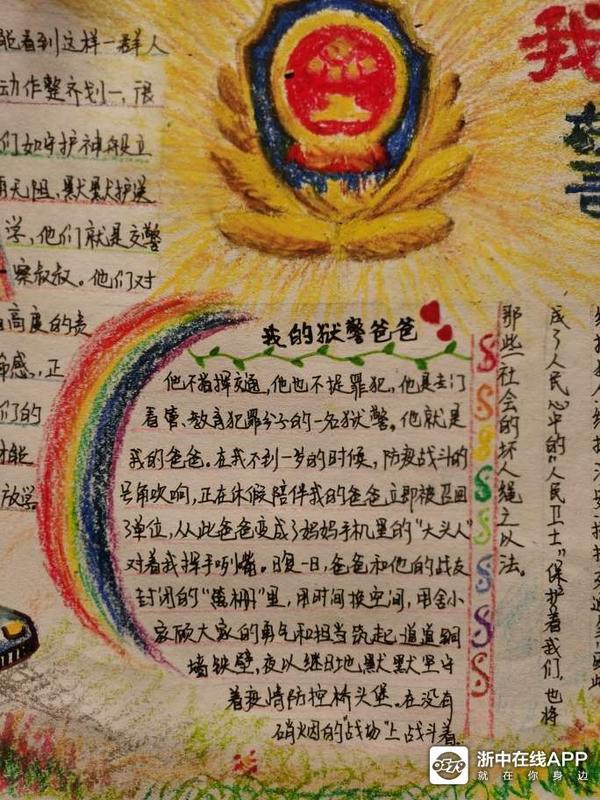 能看到这样一群人
动作整齐划一，很
们如守护神般挺立
雨无阻，默默护送
学，他们就是交警
警察叔叔。他们对
高度的责
感，正
们的
才能
放学
我
警
我的狱警爸爸
他不指挥交通，他也不捉罪犯，他是专门
看管、教育犯罪分子的一名狱警。他就是
我的爸爸。在我不到一岁的时候，防疫战斗的
号角吹响，正在休假陪伴我的爸爸立即被召回
了单位，从此爸爸变成了妈妈手机里的“大头人”
对着我挥手咧嘴。日复一日，爸爸和他的战友
封闭的“篱栅”里，用时间换空间，用舍小
家顾大家的勇气和担当筑起道道铜
墙铁壁，夜以继日地默默坚守
着疫情防控桥头堡。在没有
硝烟的“战场”上战斗着。
那些社会的坏人绳之以法。
成了人民心中的“人民卫士”保护着我们，也将
浙中在线APP
就在你身边